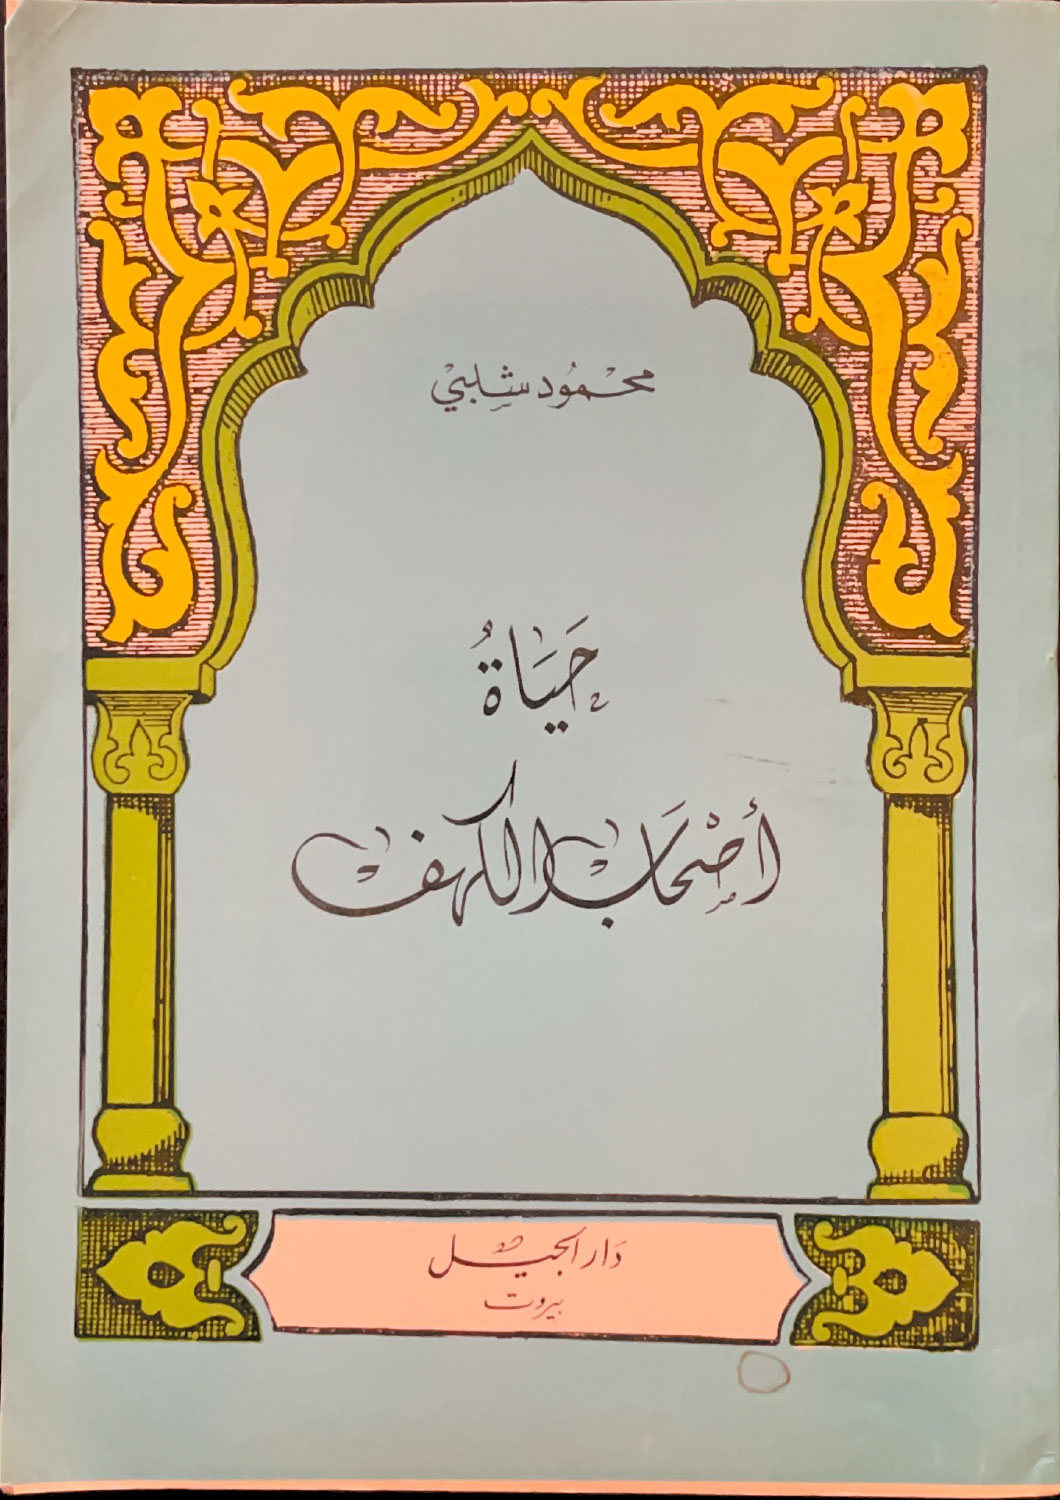 محمود شلبي
حَيَاةُ
أصْحَاب الكهف
دَار الجيل
بيروت